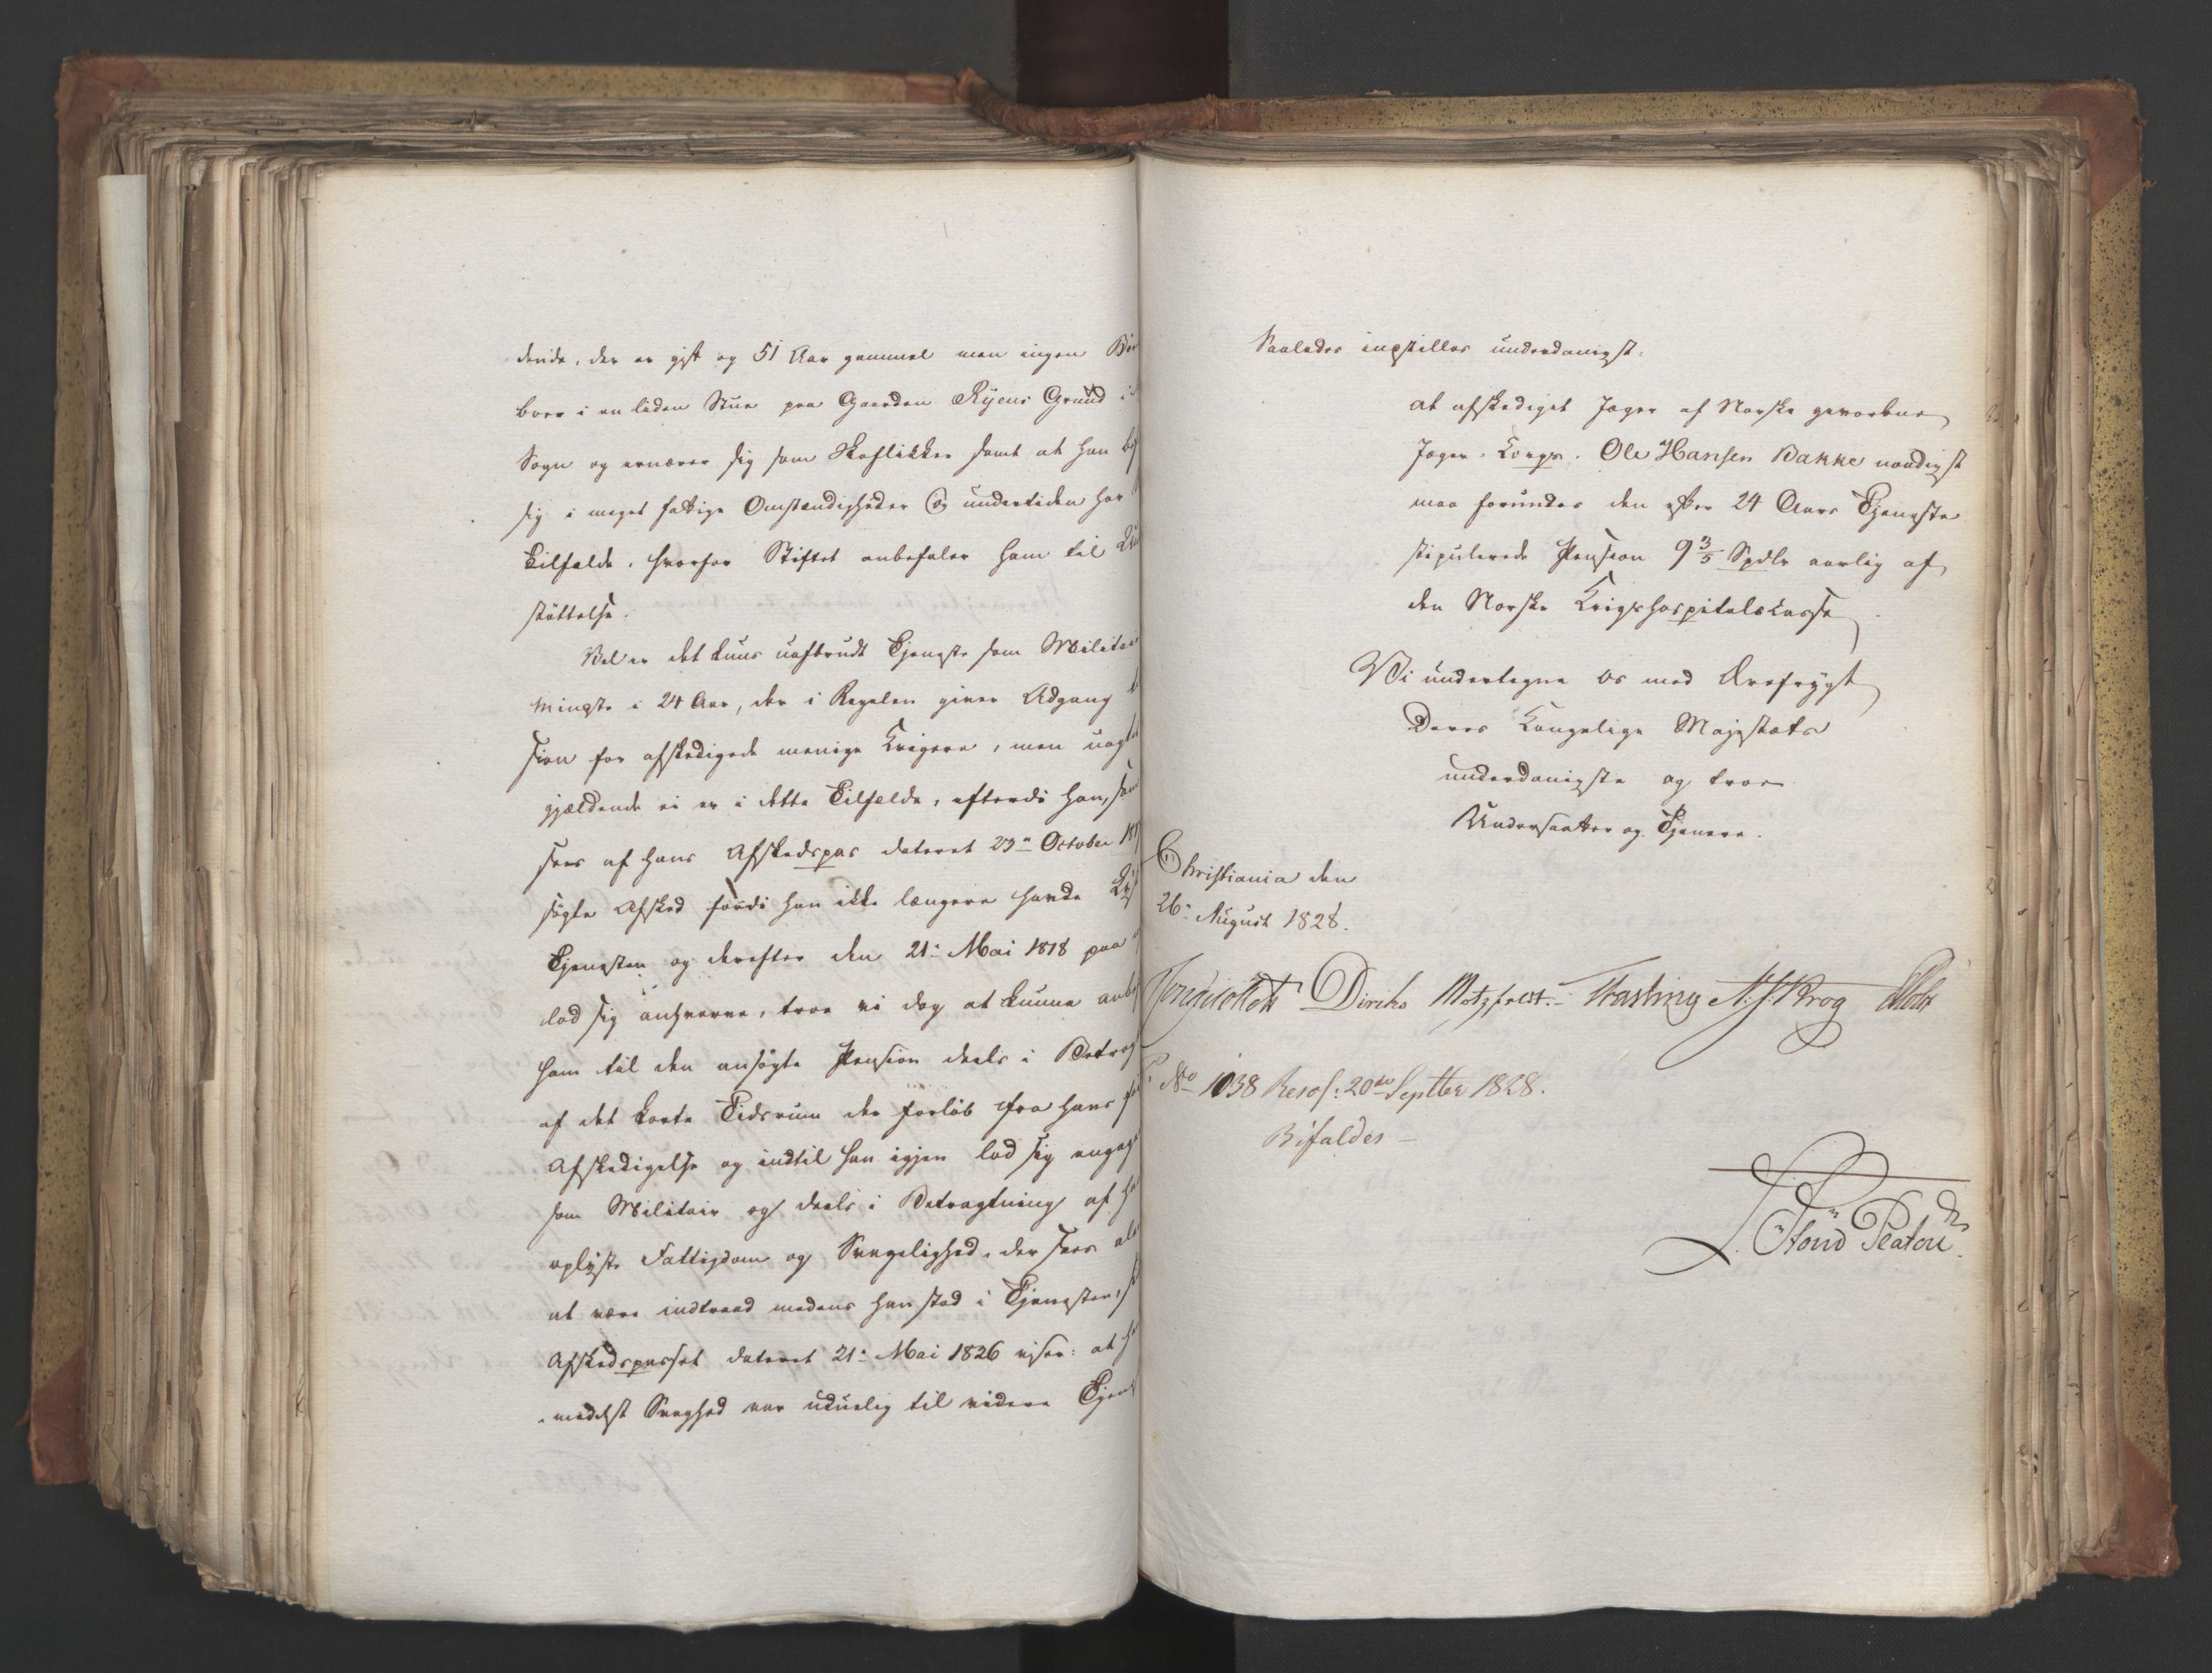 dende, der er gift og 51 Aar gammel men ingen Bör
boer i en liden Stue paa Gaarden Ryens Grund i
Sogn og ernærer sig som Skoflikker samt at han be
sig i meget fattige Omstændigheder og undertiden har
Tilfælde, hvorfor Stiftet anbefaler ham til Un
støttelse.
Vel er det kuns uafbrudt Tjeneste som Militair
mingste i 24 Aar, der i Regelen giver Adgang
sion for afskedigede menige Krigere, men uagtet
gjældende ei er i dette Tilfælde, efterdi han, som
sees af hans Afskedspas dateret 23de October 181
søgte Afsked fordi han ikke længere havde Lyst
Tjenesten og derefter den 21de Mai 1818 paa
lod sig anhverve, troe vi dog at kunne anbe
ham til den ansøgte Pension deels i Betrag
af det korte Tidsrum der forløb fra hans
Afskedigelse og indtil han igjen lod sig engage
som Militair og deels i Betragtning af ha
oplyste Fattigdom og Svagelighed, der sees al
at være indtraad medens han stod i Tjenesten,
Afskedspasset dateret 21de Mai 1826 viser: at ha
"medelst Svaghed var uduelig til videre Tjen
Saaledes indstilles underdanigst:
at afskediget Jæger af Norske gevorbne
Jæger-Corps. Ole Hansen Bakke naadigst
maa forundes den efter 24 Aars Tjeneste
stipulerede Pension 9 3/5 Spdlr aarlig af
den Norske Krigshospitalskasse
Vi undertegne os med Ærefrygt
Deres Kongelige Majestæts
underdanigste og troe
Undersaatter og Tjenere.
Christiania den
26de August 1828.
Diriks Motzfeldt. Fasting N. J. Krog
No 1038 Resol: 20de Septbr 1828.
Bifaldes